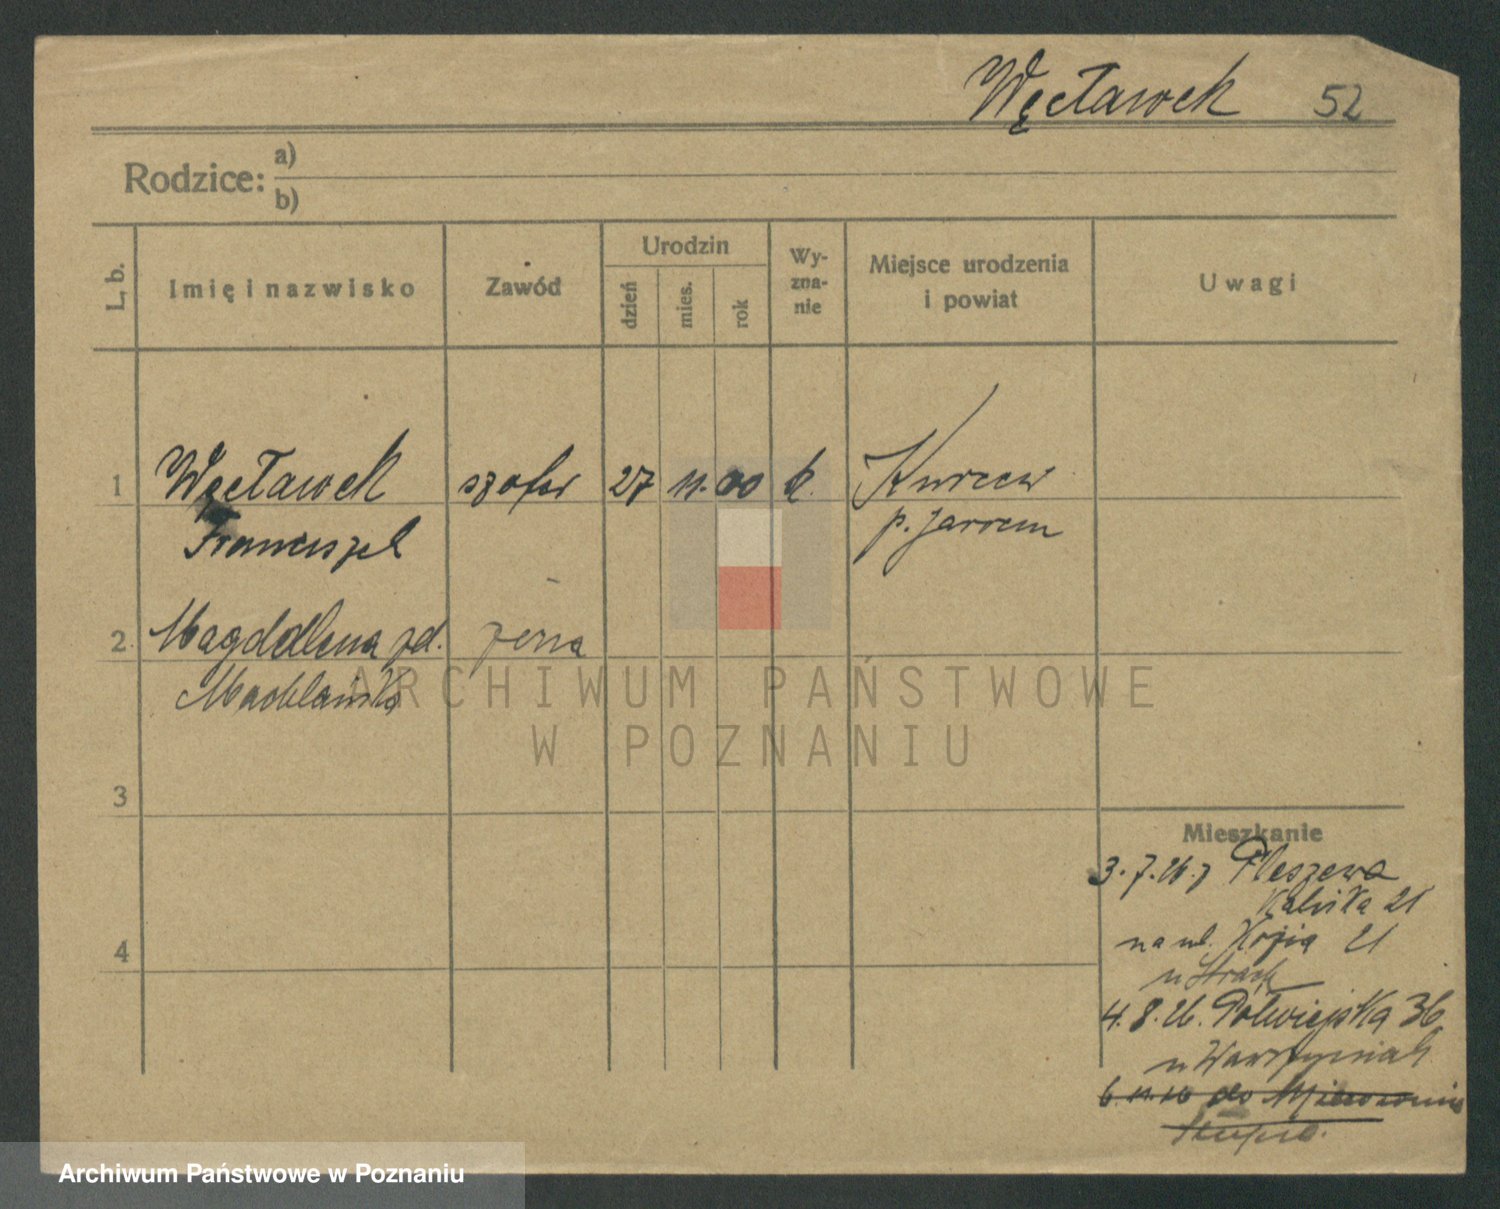 Węcławek 52
Rodzice: a)
b)
L. b.
Imię i nazwisko
Zawód
Urodzin
dzień
mies.
rok
Wy-
zna-
nie
Miejsce urodzenia
i powiat
Uwagi
1 Węcławek szofer 27 11. 00 k.
Franciszek p. Jarocin
2. Magdalena zd. żona
3
4
Mieszkanie
3. 7. 26. z Pleszewa
Kaliska 21
na ul. Kozia 21
u
4. 8. 26. Półwiejska 36
u Wawrzyniak
do
ARCHIWUM PAŃSTWOWE
W POZNANIU
Archiwum Państwowe w Poznaniu